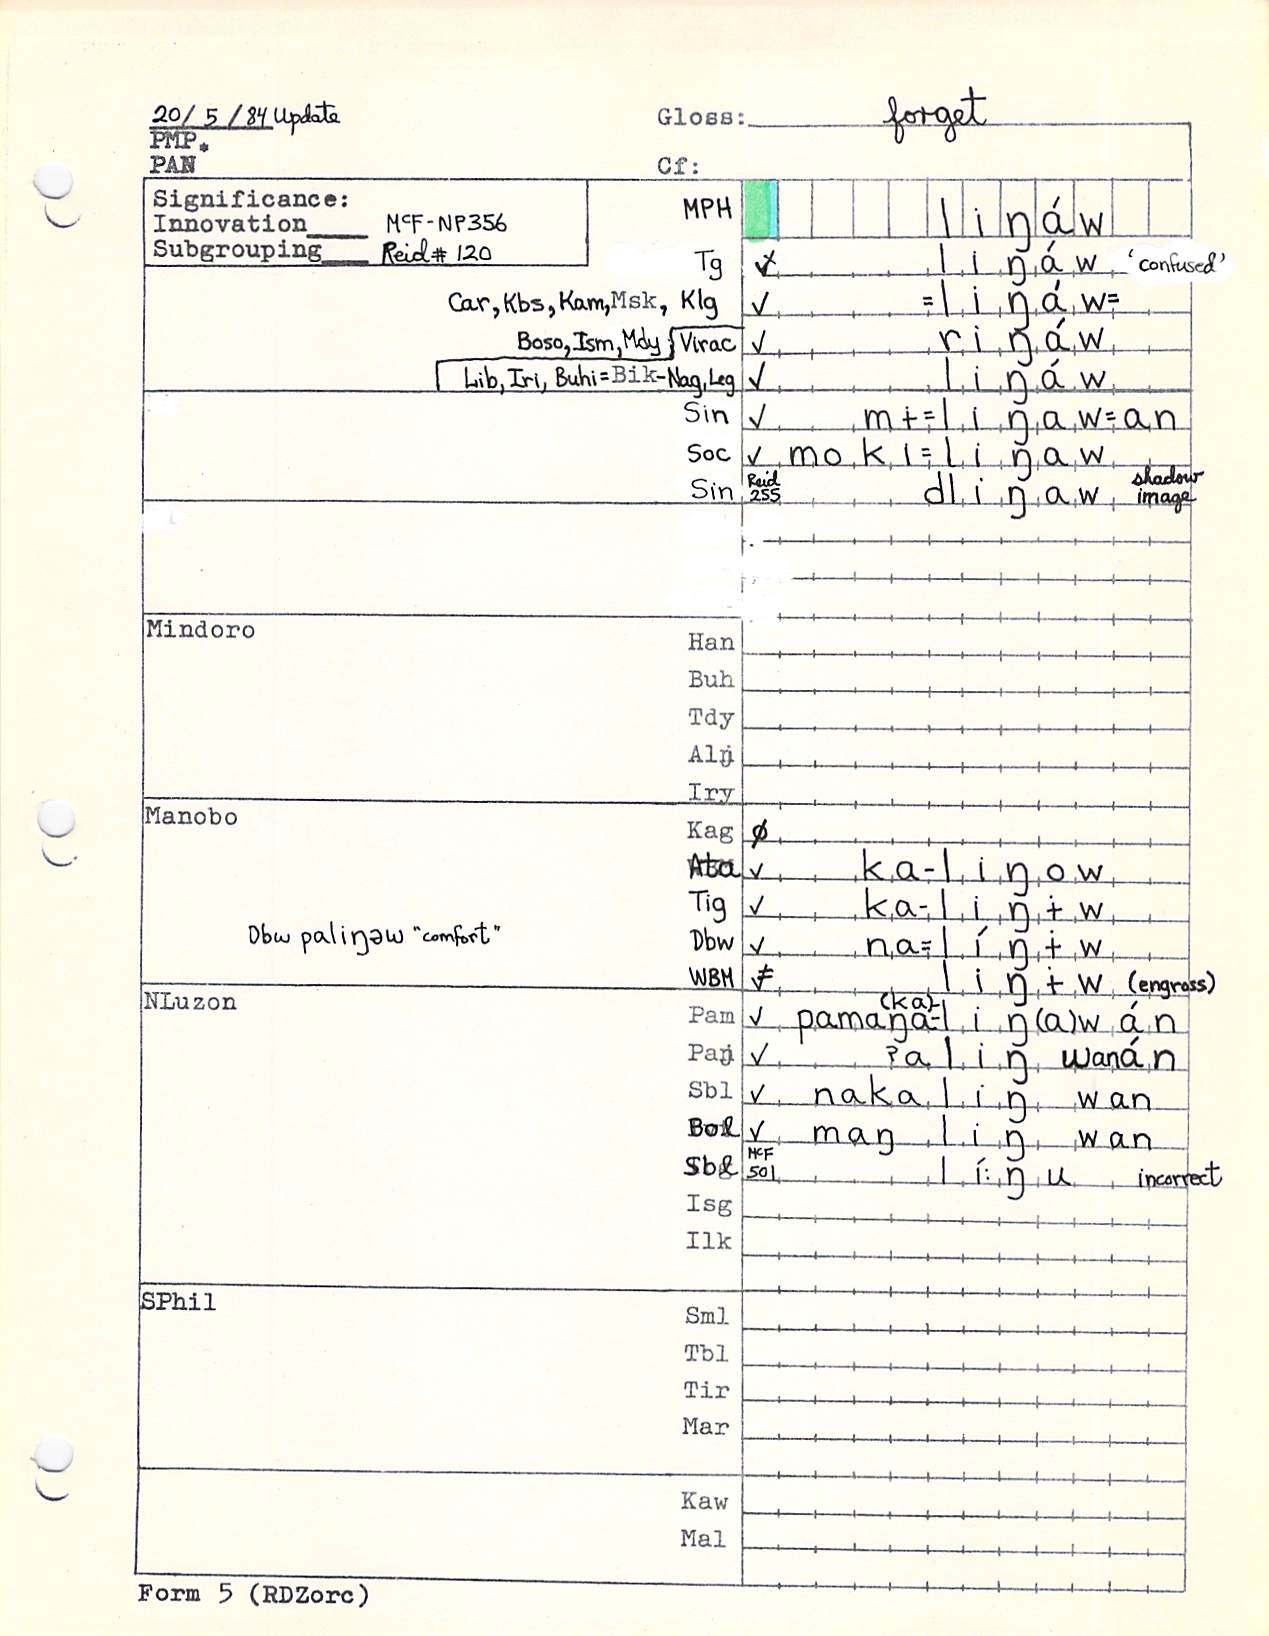 20/5/84 Update
Gloss: forget
PMP.
PAN
Cf:
Significance:
Innovation____ McF-NP356
Subgrouping____ Reid# 120
MPH liŋáw
Tg liŋáw 'confused'
Car, Kbs, Kam, Msk, Klg ✓ =liŋáw=
Boso, Ism, Mdy Virac ✓ riŋáw
Lib, Iri, Buhi=Bik-Nag, Leg ✓ liŋáw
Sin ✓ mɨ=liŋaw=an
Soc ✓ moki=liŋaw
Sin Reid 255 dliŋaw shadow image
Mindoro
Han
Buh
Tdy
Alŋ
Iry
Manobo
Kag ∅
Ata ✓ ka-liŋow
Tig ✓ ka-liŋɨw
Dbw paliŋəw "comfort"
Dbw ✓ na=líŋɨw
WBM ≠ liŋɨw (engross)
NLuzon
(ka)-
Pam ✓ pamaŋa=liŋ(a)wán
Paŋ ✓ ʔaliŋ wanán
Sbl ✓ nakaliŋ wan
Bol ✓ maŋ liŋ wan
Sbl McF 501 lí:ŋu incorrect
Isg
Ilk
SPhil
Sml
Tbl
Tir
Mar
Kaw
Mal
Form 5 (RDZorc)